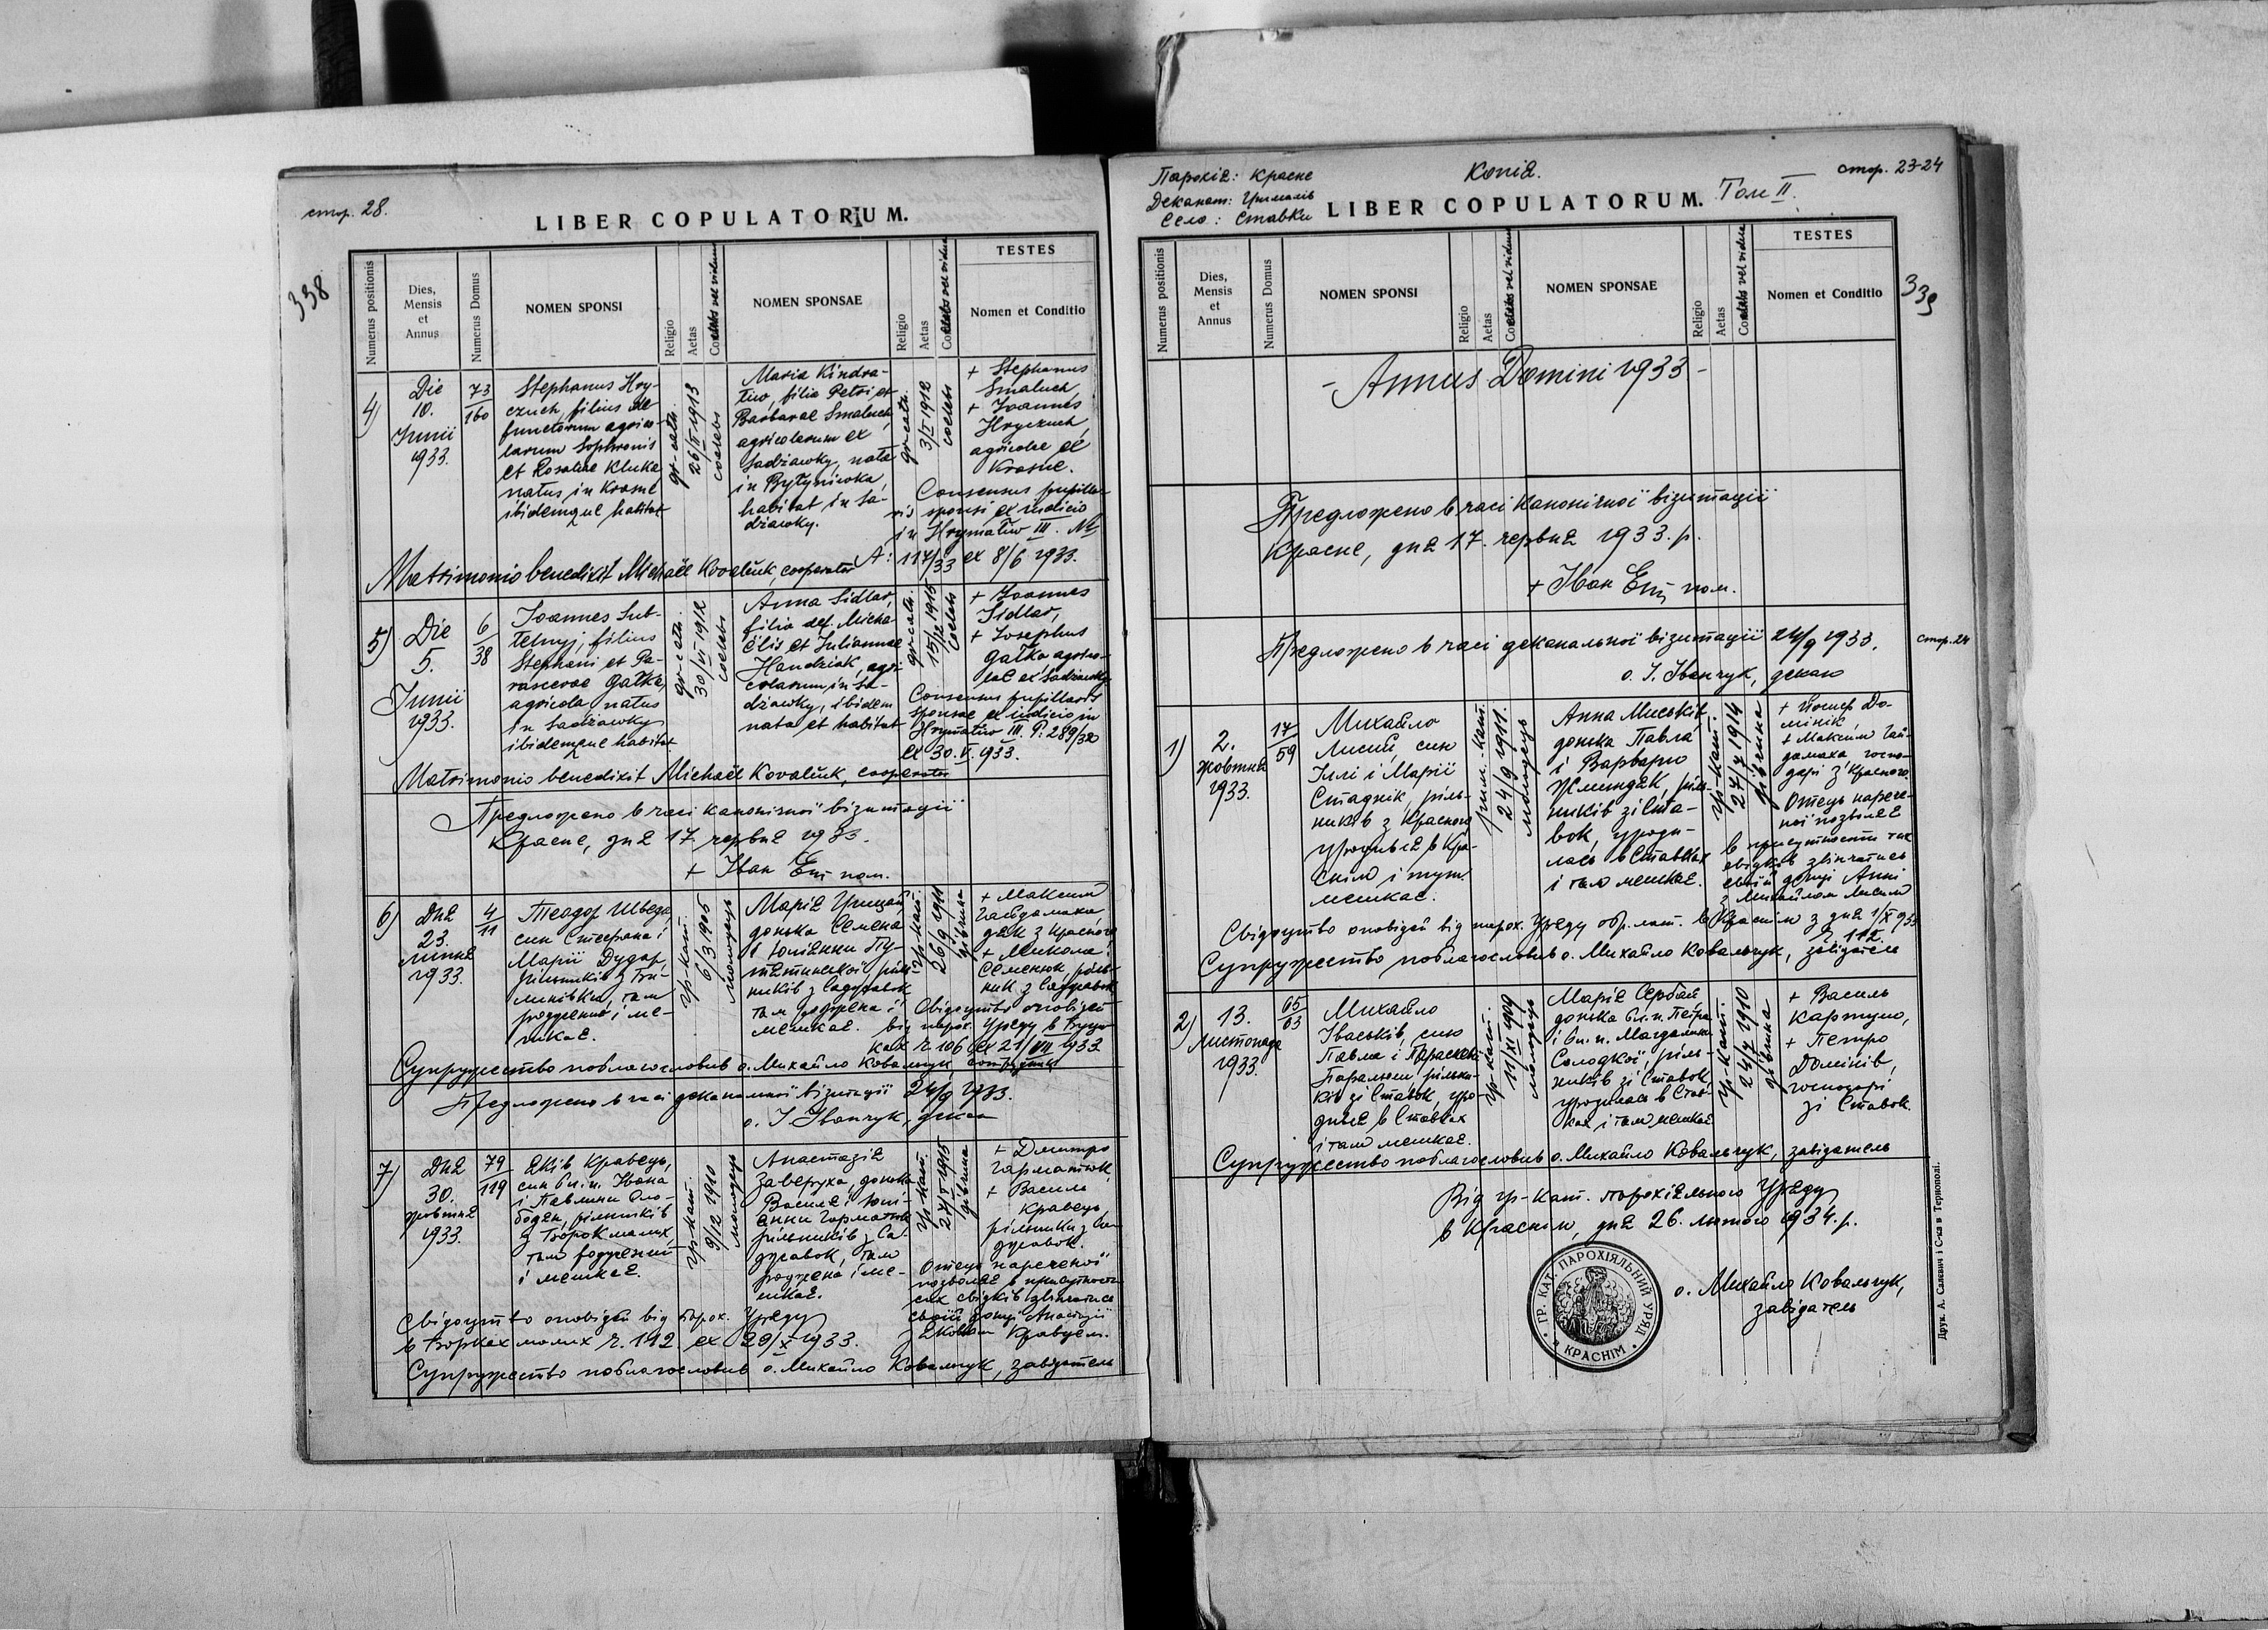 стор. 28.
LIBER COPULATORUM.
338
Numerus positionis
Dies, Mensis et Annus
Numerus Domus
NOMEN SPONSI
Religio
Aetas
Coelebs vel vidua
NOMEN SPONSAE
Religio
Aetas
Coelebs vel vidua
TESTES
Nomen et Conditio
4)
Die
10.
Junii
1933.
73
160
Stephanus Hry-
czuch, filius de-
functorum agrico-
larum Sophronis
et Rosaliae Kluka
natus in Krasne
ibidemque habitat
gr-cath.
26/II 1913
coelebs
Maria Kindra-
tiw, filia Petri et
Barbarae Smaluch,
agricolarum ex
Sadżawky, nata
in Bytyniwka,
habitat in Sa-
dżawky.
gr-cath.
3/I 1912
coelebs
+ Stephanus
Smaluch,
+ Joannes
Hryczuch,
agricolae ex
Krasne.
Consensus pupilla-
ris sponsi ex iudicio
in Hrymaliw III. Nc
A: 117/33 ex 8/6 1933.
Matrimonio benedixit Michaël Kovalčuk, cooperator
5)
Die
5.
Junii
1933.
6
38
Joannes Sub-
telnyj, filius
Stephani et Pa-
rascevae Gałka,
agricola natus
in Sadżawky
ibidemque habitat
gr-cath.
30/VI 1912
coelebs
Anna Sidlar,
filia def. Micha-
ëlis et Juliannae
Handziak, agri-
colarum in Sa-
dżawky, ibidem
nata et habitat
gr-cath.
15/12 1915
coelebs
+ Joannes
Sidlar,
+ Josephus
Gałka agrico-
lae ex Sadżawky
Consensus pupillaris
sponsae ex iudicio in
Hrymaliw III. P: 289/32
ex 30.V.1933.
Matrimonio benedixit Michaël Kovalčuk, cooperator
Предложено в часі канонічної візитації
Красне, дня 17 червня 1933.
+ Іван Еп. пом.
6)
Дня
23.
липня
1933.
4
11
Теодор Шведа,
син Стефана і
Марії Дудар,
рільників з Би-
там
роджений і ме-
шкає.
гр-кат.
6/3 1905
молодець
Марія Грицай,
донька Семена
і Юліянни Пу-
рільни-
ників з Саджавок
там роджена і
мешкає.
гр-кат.
26/9 1911
дівчина
+ Максим
Гайдамаха,
дяк з Красного
+ Микола
Семенюк, ріль-
ник з Саджавок
Свідоцтво оповідей
від парох. Уряду в
ч. 106 ex 21/VII 1933
Супружество поблагословив о. Михайло Ковальчук, сотрудник
Предложено в часі деканальної візитації 24/9 1933.
о. І. Іванчук, декан
7)
Дня
30.
жовтня
1933.
79
119
Яків Кравець,
син бл.п. Івана
і Павлини Сло-
бодян, рільників
з Борок малих,
там роджений
і мешкає.
гр-кат.
9/12 1910
молодець
Анастазія
Заверуха, донька
Василя і Юлі-
янни Гарматюк
рільників з Са-
джавок, там
роджена і ме-
шкає.
гр-кат.
27/I 1915
дівчина
+ Дмитро
Гарматюк,
+ Василь
Кравець,
рільники з Са-
джавок.
Отець нареченої
позволяє в присутности
сих свідків звінчатися
своїй доньці Анастазії
з Яковом Кравцем.
Свідоцтво оповідей від парох. Уряду
в Борках малих ч. 192 ex 29/X 1933.
Супружество поблагословив о. Михайло Ковальчук, завідатель
Парохія: Красне
Деканат: Грималів
Село: Ставки
Копія.
стор. 23-24
LIBER COPULATORUM. Том II.
339
Numerus positionis
Dies, Mensis et Annus
Numerus Domus
NOMEN SPONSI
Religio
Aetas
Coelebs vel vidua
NOMEN SPONSAE
Religio
Aetas
Coelebs vel vidua
TESTES
Nomen et Conditio
- Annus Domini 1933 -
Предложено в часі канонічної візитації
Красне, дня 17. червня 1933. р.
+ Іван Еп. пом.
Предложено в часі деканальної візитації 24/9 1933.
стор. 24
о. І. Іванчук, декан
1)
2.
жовтня
1933.
17
59
Михайло
Лисий, син
Іллі і Марії
Стаднік, ріль-
ників з Красного
уродився в Кра-
снім і тут
мешкає.
рим.-кат.
24/9 1911.
молодець
Анна Миськів
донька Павла
і Варвари
Жминдяк, ріль-
ників зі Ста-
вок, уроди-
лась в Ставках
і там мешкає.
гр-кат.
27/7 1914
дівчина
+ Йосиф До-
мінік,
+ Максим Гай-
дамаха госпо-
дарі з Красного.
Отець нарече-
ної позволяє
в присутности тих
свідків звінчатись
своїй доньці Анні
з Михайлом Лисим
Свідоцтво оповідей від парох. Уряду обр. лат. в Краснім з дня 1/X 933
ч. 112.
Супружество поблагословив о. Михайло Ковальчук, завідатель
2)
13.
листопада
1933.
65
63
Михайло
Іваськів, син
Павла і Параскеви
Паралюш рільни-
ків зі Ставок, уро-
дився в Ставках
і там мешкає.
гр-кат.
11/XI 1909
молодець
Марія Сербай
донька бл.п. Петра
і бл.п. Магдалини
Солодкої, ріль-
ників зі Ставок,
уродилась в Став-
ках і там мешкає
гр-кат.
24/7 1910
дівчина
+ Василь
Картушо,
+ Петро
Домінів,
господарі
зі Ставок.
Супружество поблагословив о. Михайло Ковальчук, завідатель
Від гр-кат. парохіяльного Уряду
в Краснім, дня 26. лютого 1934. р.
ГР. КАТ. ПАРОХІЯЛЬНИЙ УРЯД
В КРАСНІМ
о. Михайло Ковальчук,
завідатель
Друк. А. Салевич і С-ка в Тернополі.